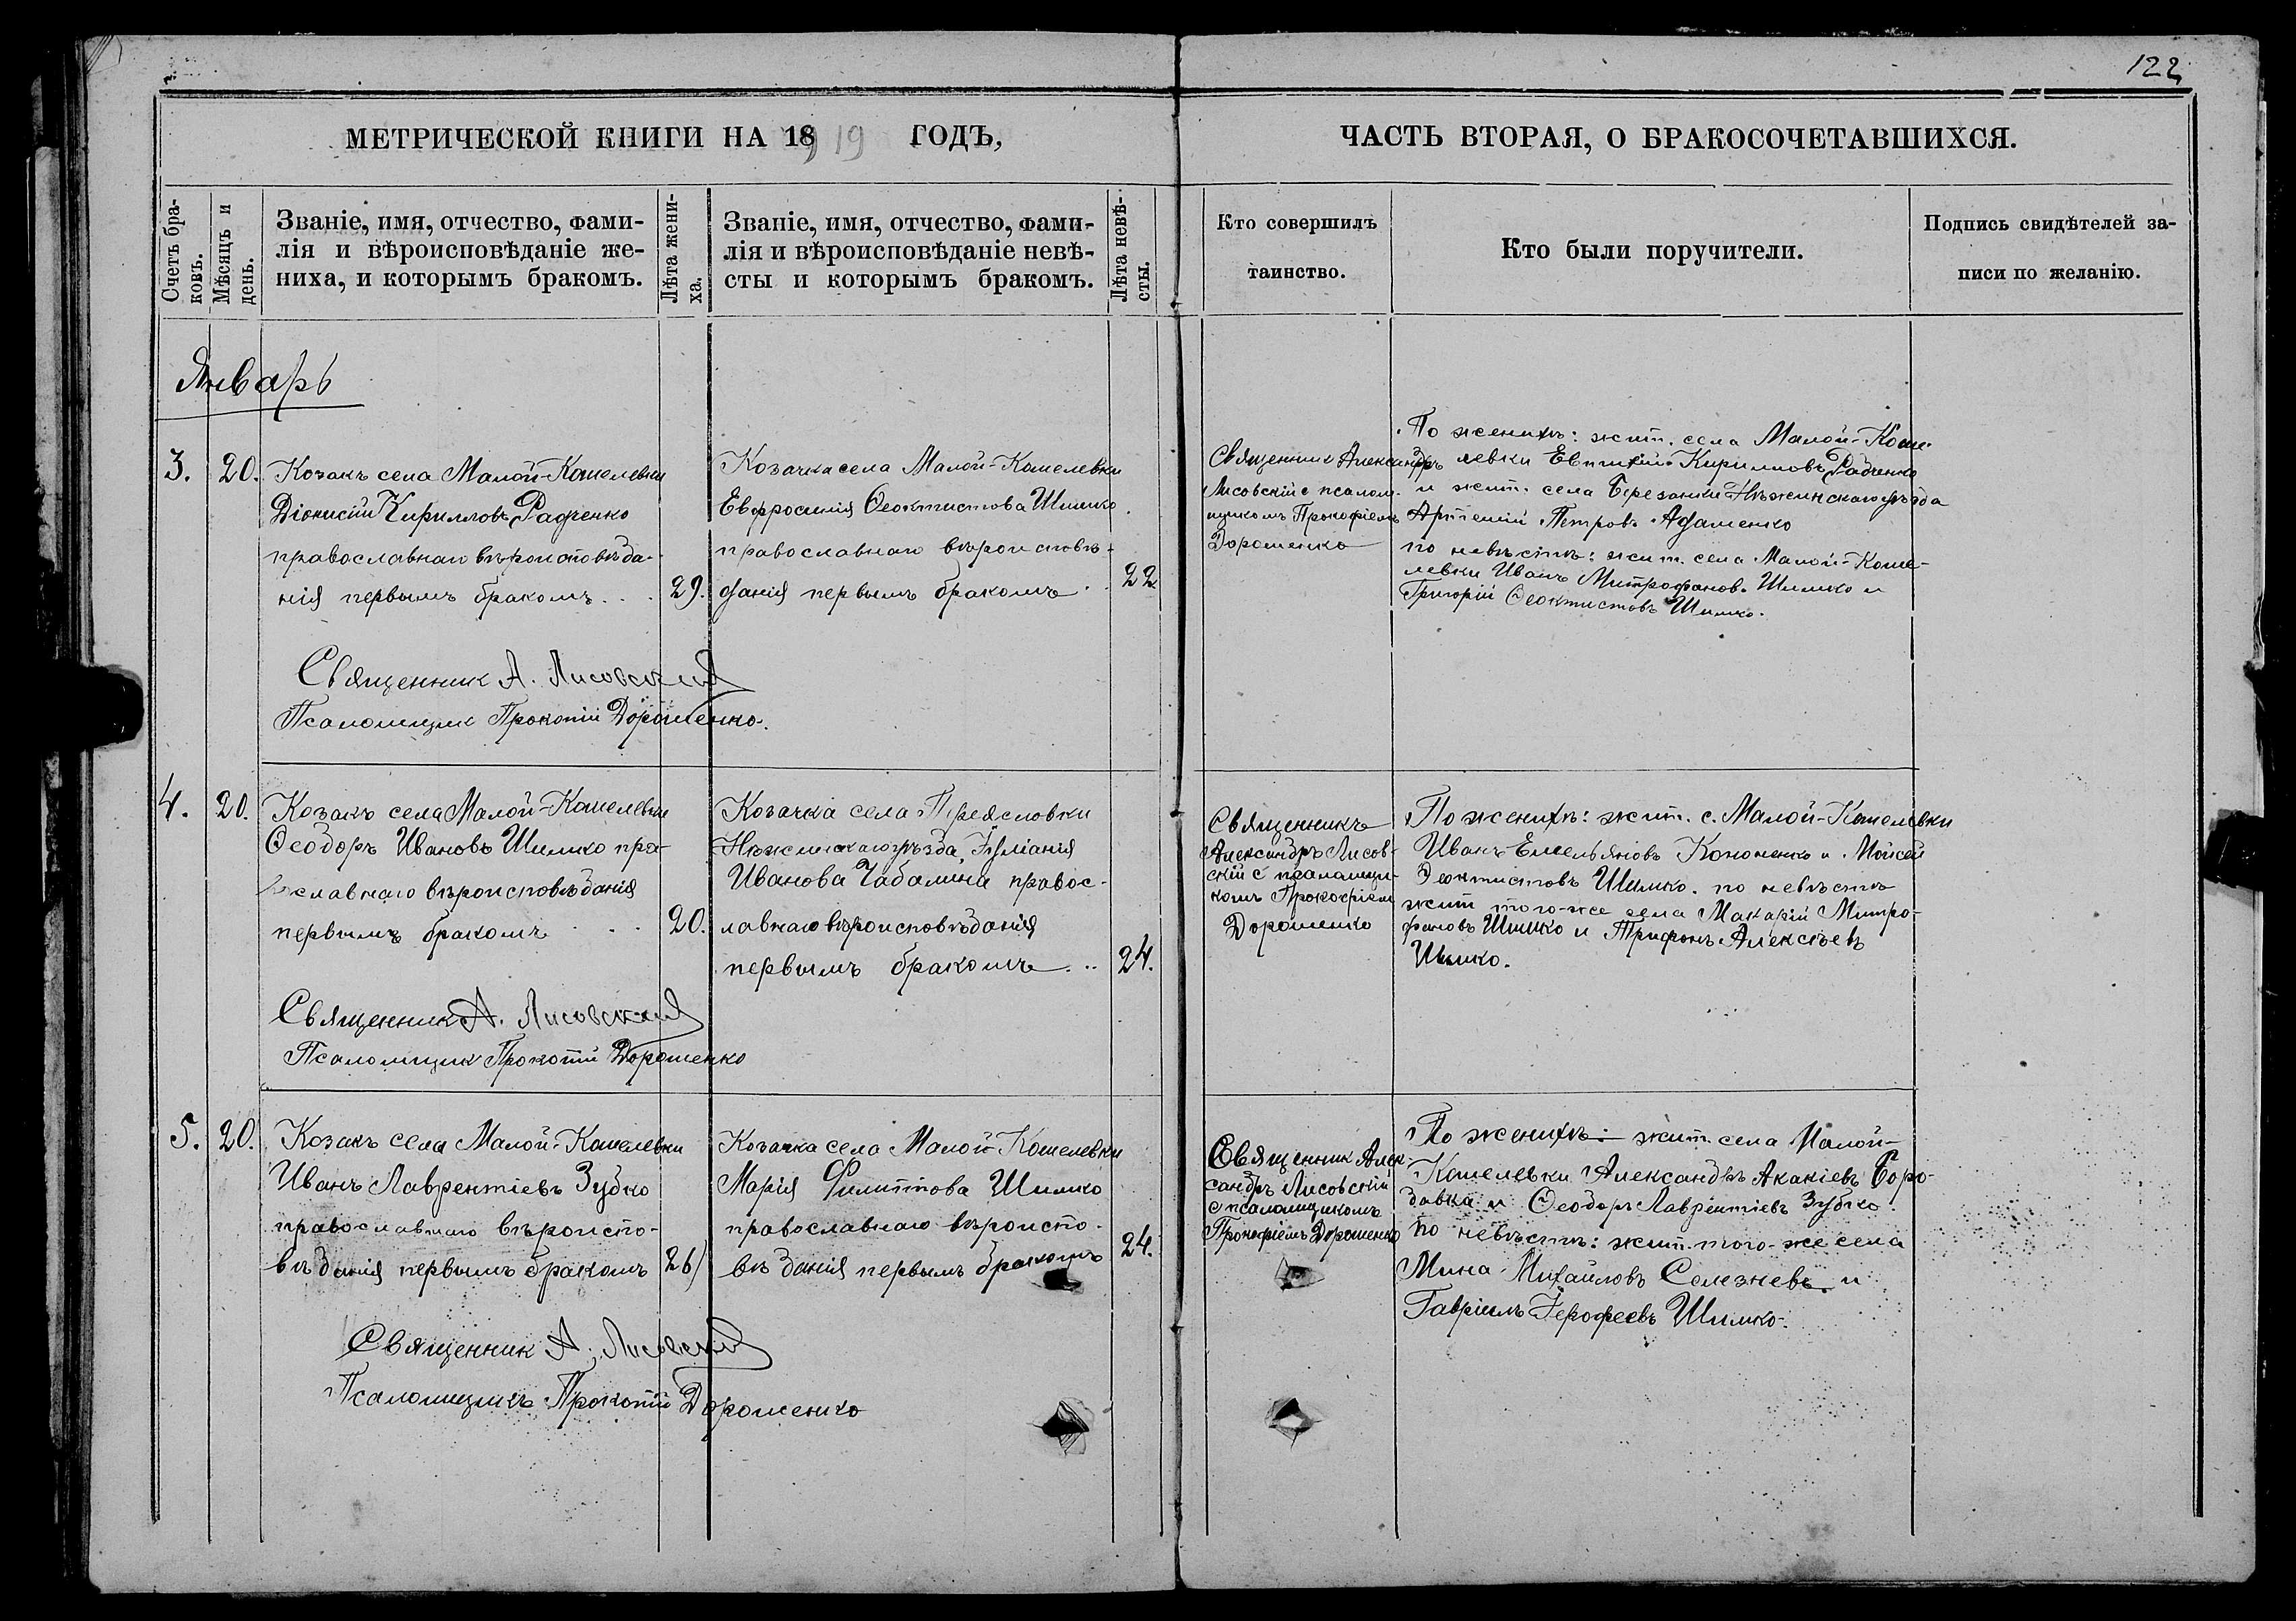 122
МЕТРИЧЕСКОЙ КНИГИ НА 1919 ГОДЪ,
ЧАСТЬ ВТОРАЯ, О БРАКОСОЧЕТАВШИХСЯ.
Счетъ бра-
ковъ.
Мѣсяцъ и
день.
Званіе, имя, отчество, фами-
лія и вѣроисповѣданіе же-
ниха, и которымъ бракомъ.
Лѣта жени-
ха.
Званіе, имя, отчество, фами-
лія и вѣроисповѣданіе невѣ-
сты и которымъ бракомъ.
Лѣта невѣ-
сты.
Кто совершилъ
таинство.
Кто были поручители.
Подпись свидѣтелей за-
писи по желанію.
Январь
3.
20.
Козакъ села Малой-Кошелевки
Діонисій Кирилловъ Радченко
православнаго вѣроисповѣда-
нія первымъ бракомъ . . .
29.
Козачка села Малой-Кошелевки
Евфросинія Ѳеоктистова Шимко
православнаго вѣроисповѣ-
данія первымъ бракомъ . .
22
Священник Александръ
Лисовскій с псалом-
щикомъ Прокофіемъ
Дорошенко
По женихѣ: жит. села Малой-Коше-
левки Евтихій Кирилловъ Радченко
и жит. села Березанки Нѣжинскаго уѣзда
Артемій Петровъ Адаменко
по невѣстѣ: жит. села Малой-Коше-
левки Иванъ Митрофановъ Шимко и
Григорій Ѳеоктистовъ Шимко.
Священник А. Лисовский
Псаломщик Прокопій Дорошенко.
4.
20.
Козакъ села Малой-Кошелевки
Ѳеодоръ Ивановъ Шимко пра-
вославнаго вѣроисповѣданія
первымъ бракомъ . . .
20.
Козачка села Переясловки
Нѣжинскаго уѣзда, Іуліанія
Иванова Чабалина правос-
лавнаго вѣроисповѣданія
первымъ бракомъ . ..
24.
Священникъ
Александръ Лисов-
скій с псаломщи-
комъ Прокофіем
Дорошенко
По женихѣ: жит. с. Малой-Кошелевки
Иванъ Емельяновъ Кононенко и Моисей
Ѳеоктистовъ Шимко. по невѣстѣ
жит того-же села Макарій Митро-
фановъ Шимко и Трифонъ Алексѣевъ
Шимко.
Священник А. Лисовский
Псаломщик Прокопій Дорошенко
5.
20.
Козакъ села Малой-Кошелевки
Иванъ Лаврентіевъ Зубко
православнаго вѣроиспо-
вѣданія первымъ бракомъ
26
Козачка села Малой Кошелевки
Марія Филиппова Шимко
православнаго вѣроиспо-
вѣданія первымъ бракомъ
24.
Священник Алек-
сандръ Лисовскій
с псаломщикомъ
Прокофіемъ Дорошенко
По женихѣ: жит. села Малой-
Кошелевки Александръ Акакіевъ Боро-
давка и Ѳеодоръ Лаврентіевъ Зубко
по невѣстѣ: жит. того-же села
Мина Михайловъ Селезневъ и
Гавріилъ Іерофеевъ Шимко.
Священник А. Лисовский
Псаломщикъ Прокопій Дорошенко